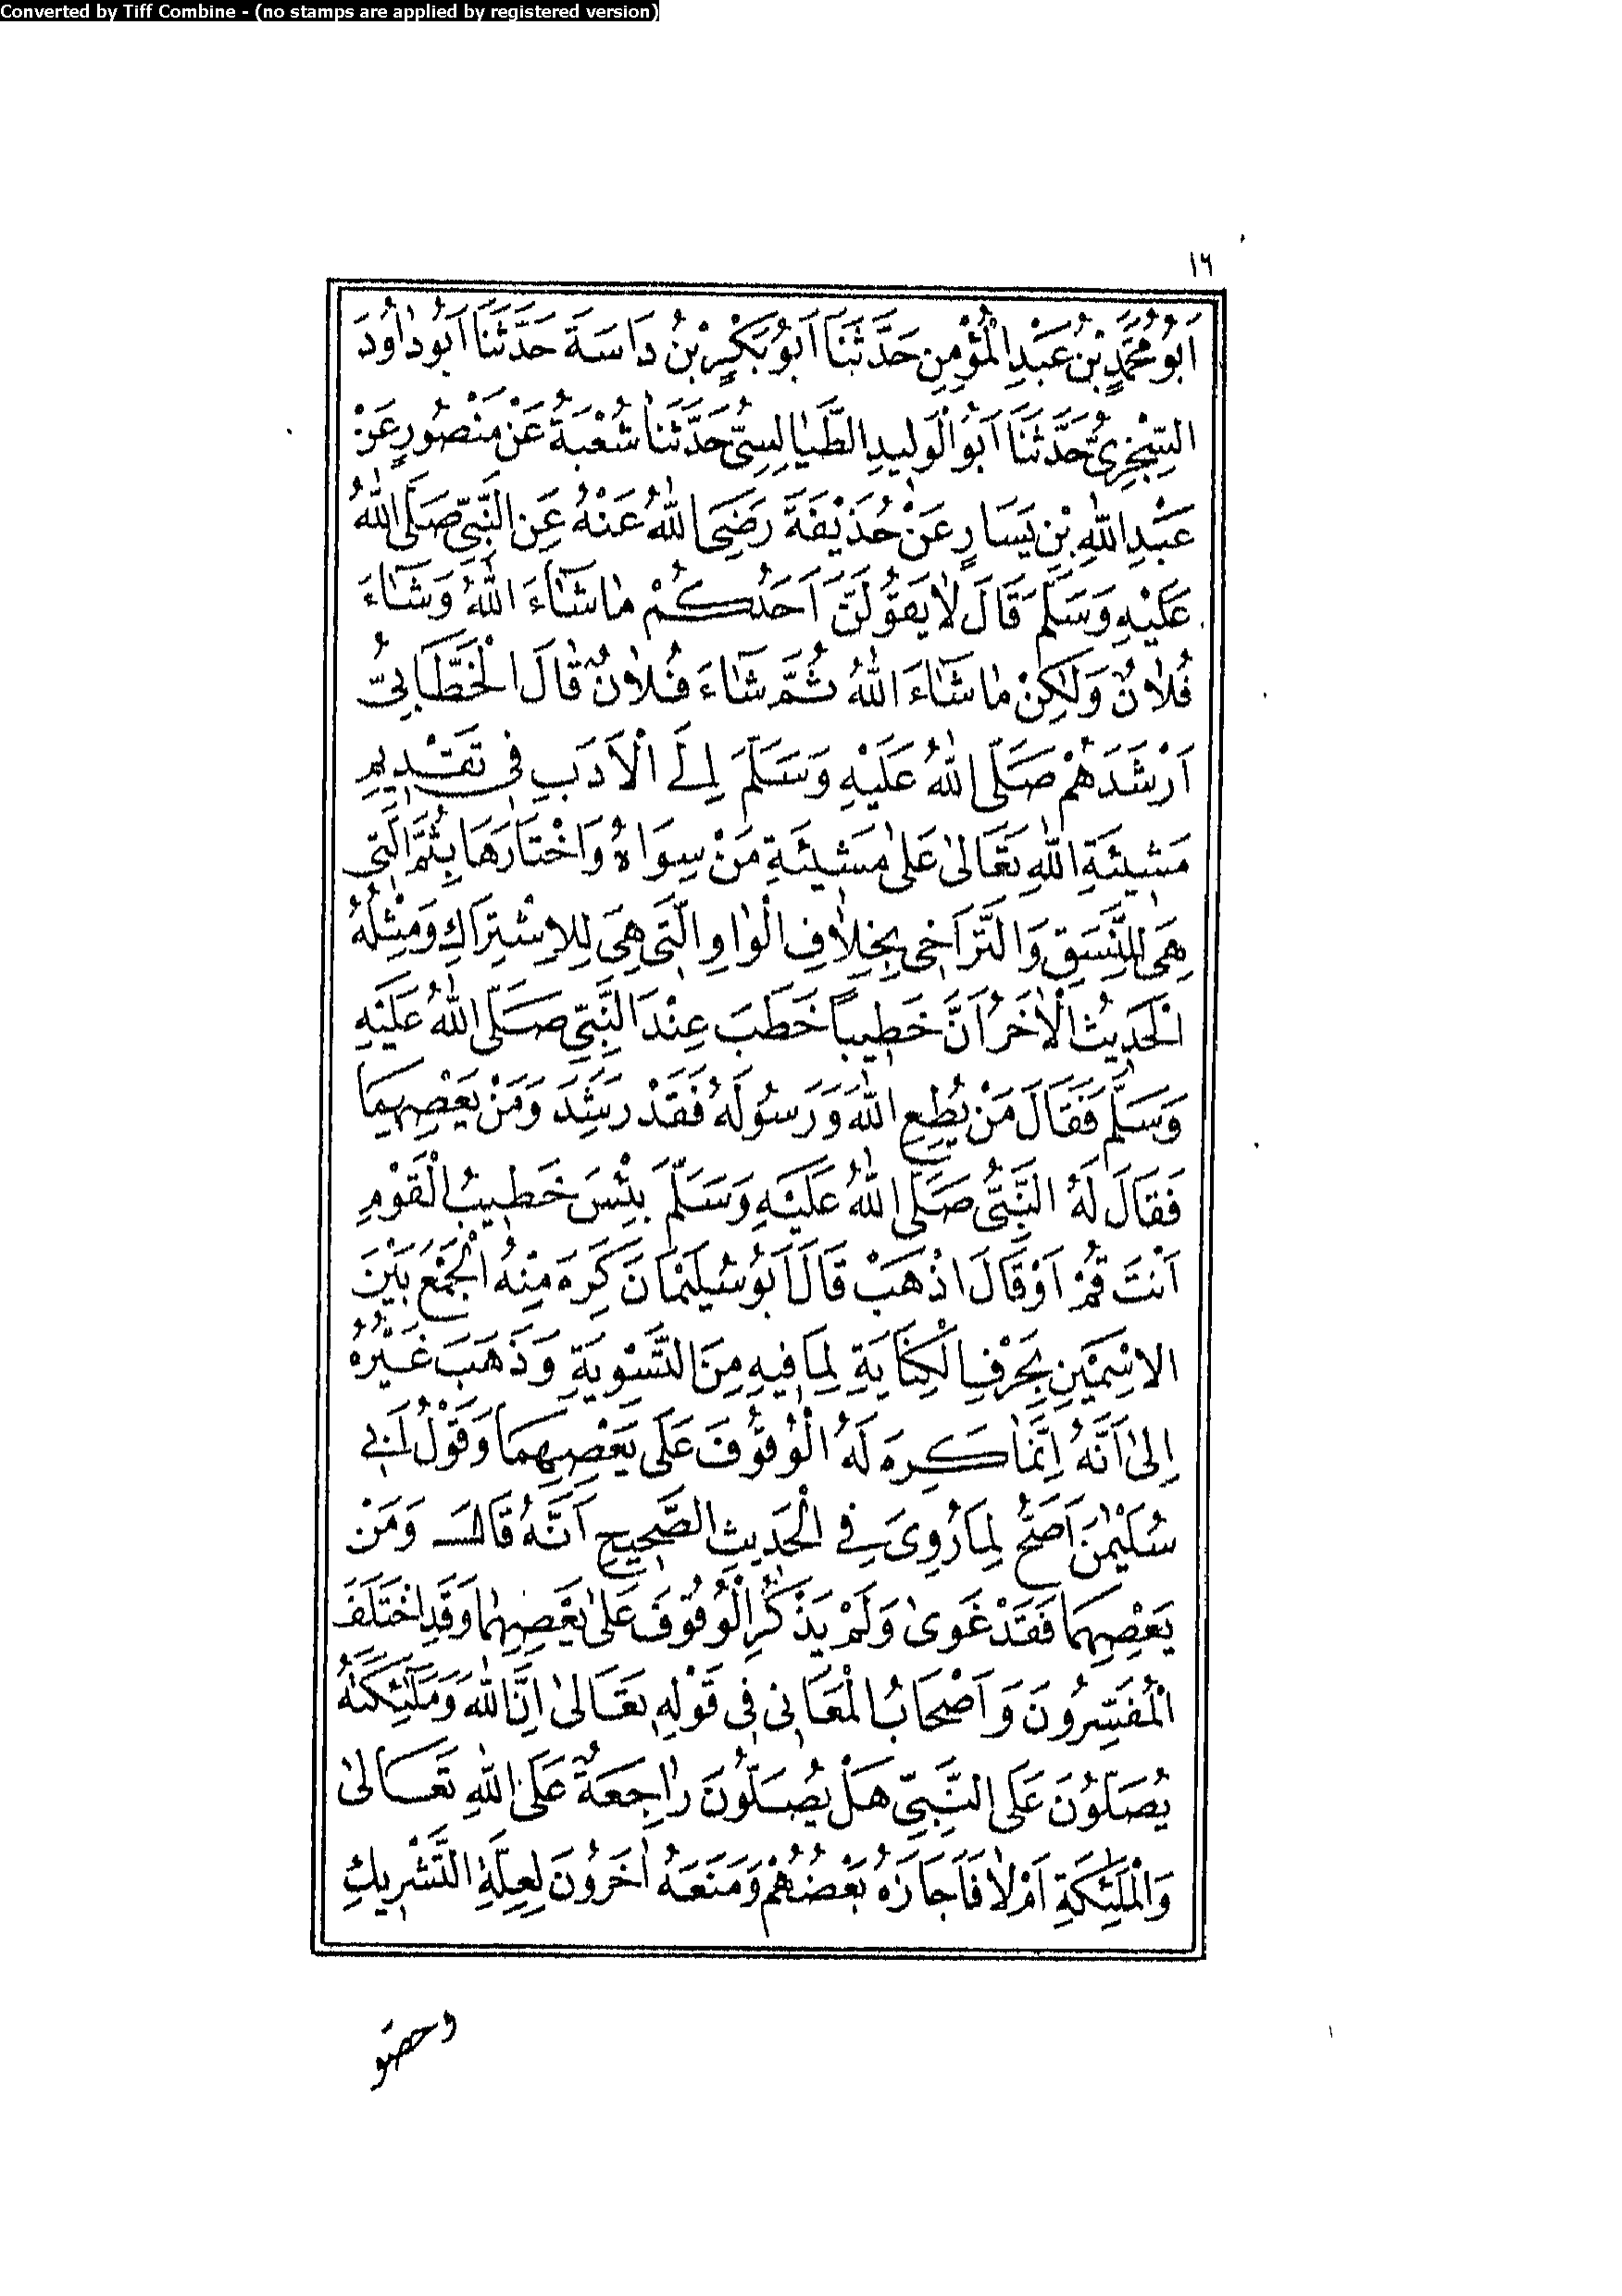 Converted by Tiff Combine - (no stamps are applied by registered version)
١٦
اَبُو مُحَمَّدِ بْنُ عَبْدِ الْمُؤْمِنِ حَدَّثَنَا اَبُو بَكْرِ بْنُ دَاسَةَ حَدَّثَنَا اَبُو دَاوُدَ
السِّجْزِيُّ حَدَّثَنَا اَبُو الْوَلِيدِ الطَّيَالِسِيُّ حَدَّثَنَا شُعْبَةُ عَنْ مَنْصُورٍ عَنْ
عَبْدِ اللّٰهِ بْنِ يَسَارٍ عَنْ حُذَيْفَةَ رَضِيَ اللّٰهُ عَنْهُ عَنِ النَّبِيِّ صَلَّى اللّٰهُ
عَلَيْهِ وَسَلَّمَ قَالَ لَا يَقُولَنَّ اَحَدُكُمْ مَا شَاءَ اللّٰهُ وَشَاءَ
فُلَانٌ وَلٰكِنْ مَا شَاءَ اللّٰهُ ثُمَّ شَاءَ فُلَانٌ قَالَ الْخَطَّابِيُّ
اَرْشَدَهُمْ صَلَّى اللّٰهُ عَلَيْهِ وَسَلَّمَ اِلَى الْاَدَبِ فِي تَقْدِيمِ
مَشِيئَةِ اللّٰهِ تَعَالٰى عَلٰى مَشِيئَةِ مَنْ سِوَاهُ وَاخْتَارَهَا بِثُمَّ الَّتِي
هِيَ لِلنَّسَقِ وَالتَّرَاخِي بِخِلَافِ الْوَاوِ الَّتِي هِيَ لِلِاشْتِرَاكِ وَمِثْلُهُ
الْحَدِيثُ الْاٰخَرُ اَنَّ خَطِيبًا خَطَبَ عِنْدَ النَّبِيِّ صَلَّى اللّٰهُ عَلَيْهِ
وَسَلَّمَ فَقَالَ مَنْ يُطِعِ اللّٰهَ وَرَسُولَهُ فَقَدْ رَشِدَ وَمَنْ يَعْصِهِمَا
فَقَالَ لَهُ النَّبِيُّ صَلَّى اللّٰهُ عَلَيْهِ وَسَلَّمَ بِئْسَ خَطِيبُ الْقَوْمِ
اَنْتَ قُمْ اَوْ قَالَ اذْهَبْ قَالَ اَبُو سُلَيْمَانَ كَرِهَ مِنْهُ الْجَمْعَ بَيْنَ
الِاسْمَيْنِ بِحَرْفِ الْكِنَايَةِ لِمَا فِيهِ مِنَ التَّسْوِيَةِ وَذَهَبَ غَيْرُهُ
اِلٰى اَنَّهُ اِنَّمَا كَرِهَ لَهُ الْوُقُوفَ عَلَى يَعْصِهِمَا وَقَوْلُ اَبِي
سُلَيْمٰنَ اَصَحُّ لِمَا رُوِيَ فِي الْحَدِيثِ الصَّحِيحِ اَنَّهُ قَالَ وَمَنْ
يَعْصِهِمَا فَقَدْ غَوٰى وَلَمْ يَذْكُرِ الْوُقُوفَ عَلٰى يَعْصِهِمَا وَقَدِ اخْتَلَفَ
الْمُفَسِّرُونَ وَاَصْحَابُ الْمَعَانِي فِي قَوْلِهِ تَعَالٰى اِنَّ اللّٰهَ وَمَلٰئِكَتَهُ
يُصَلُّونَ عَلَى النَّبِيِّ هَلْ يُصَلُّونَ رَاجِعَةٌ عَلَى اللّٰهِ تَعَالٰى
وَالْمَلٰئِكَةِ اَمْ لَا فَاَجَازَهُ بَعْضُهُمْ وَمَنَعَهُ اٰخَرُونَ لِعِلَّةِ التَّشْرِيكِ
وخصوا